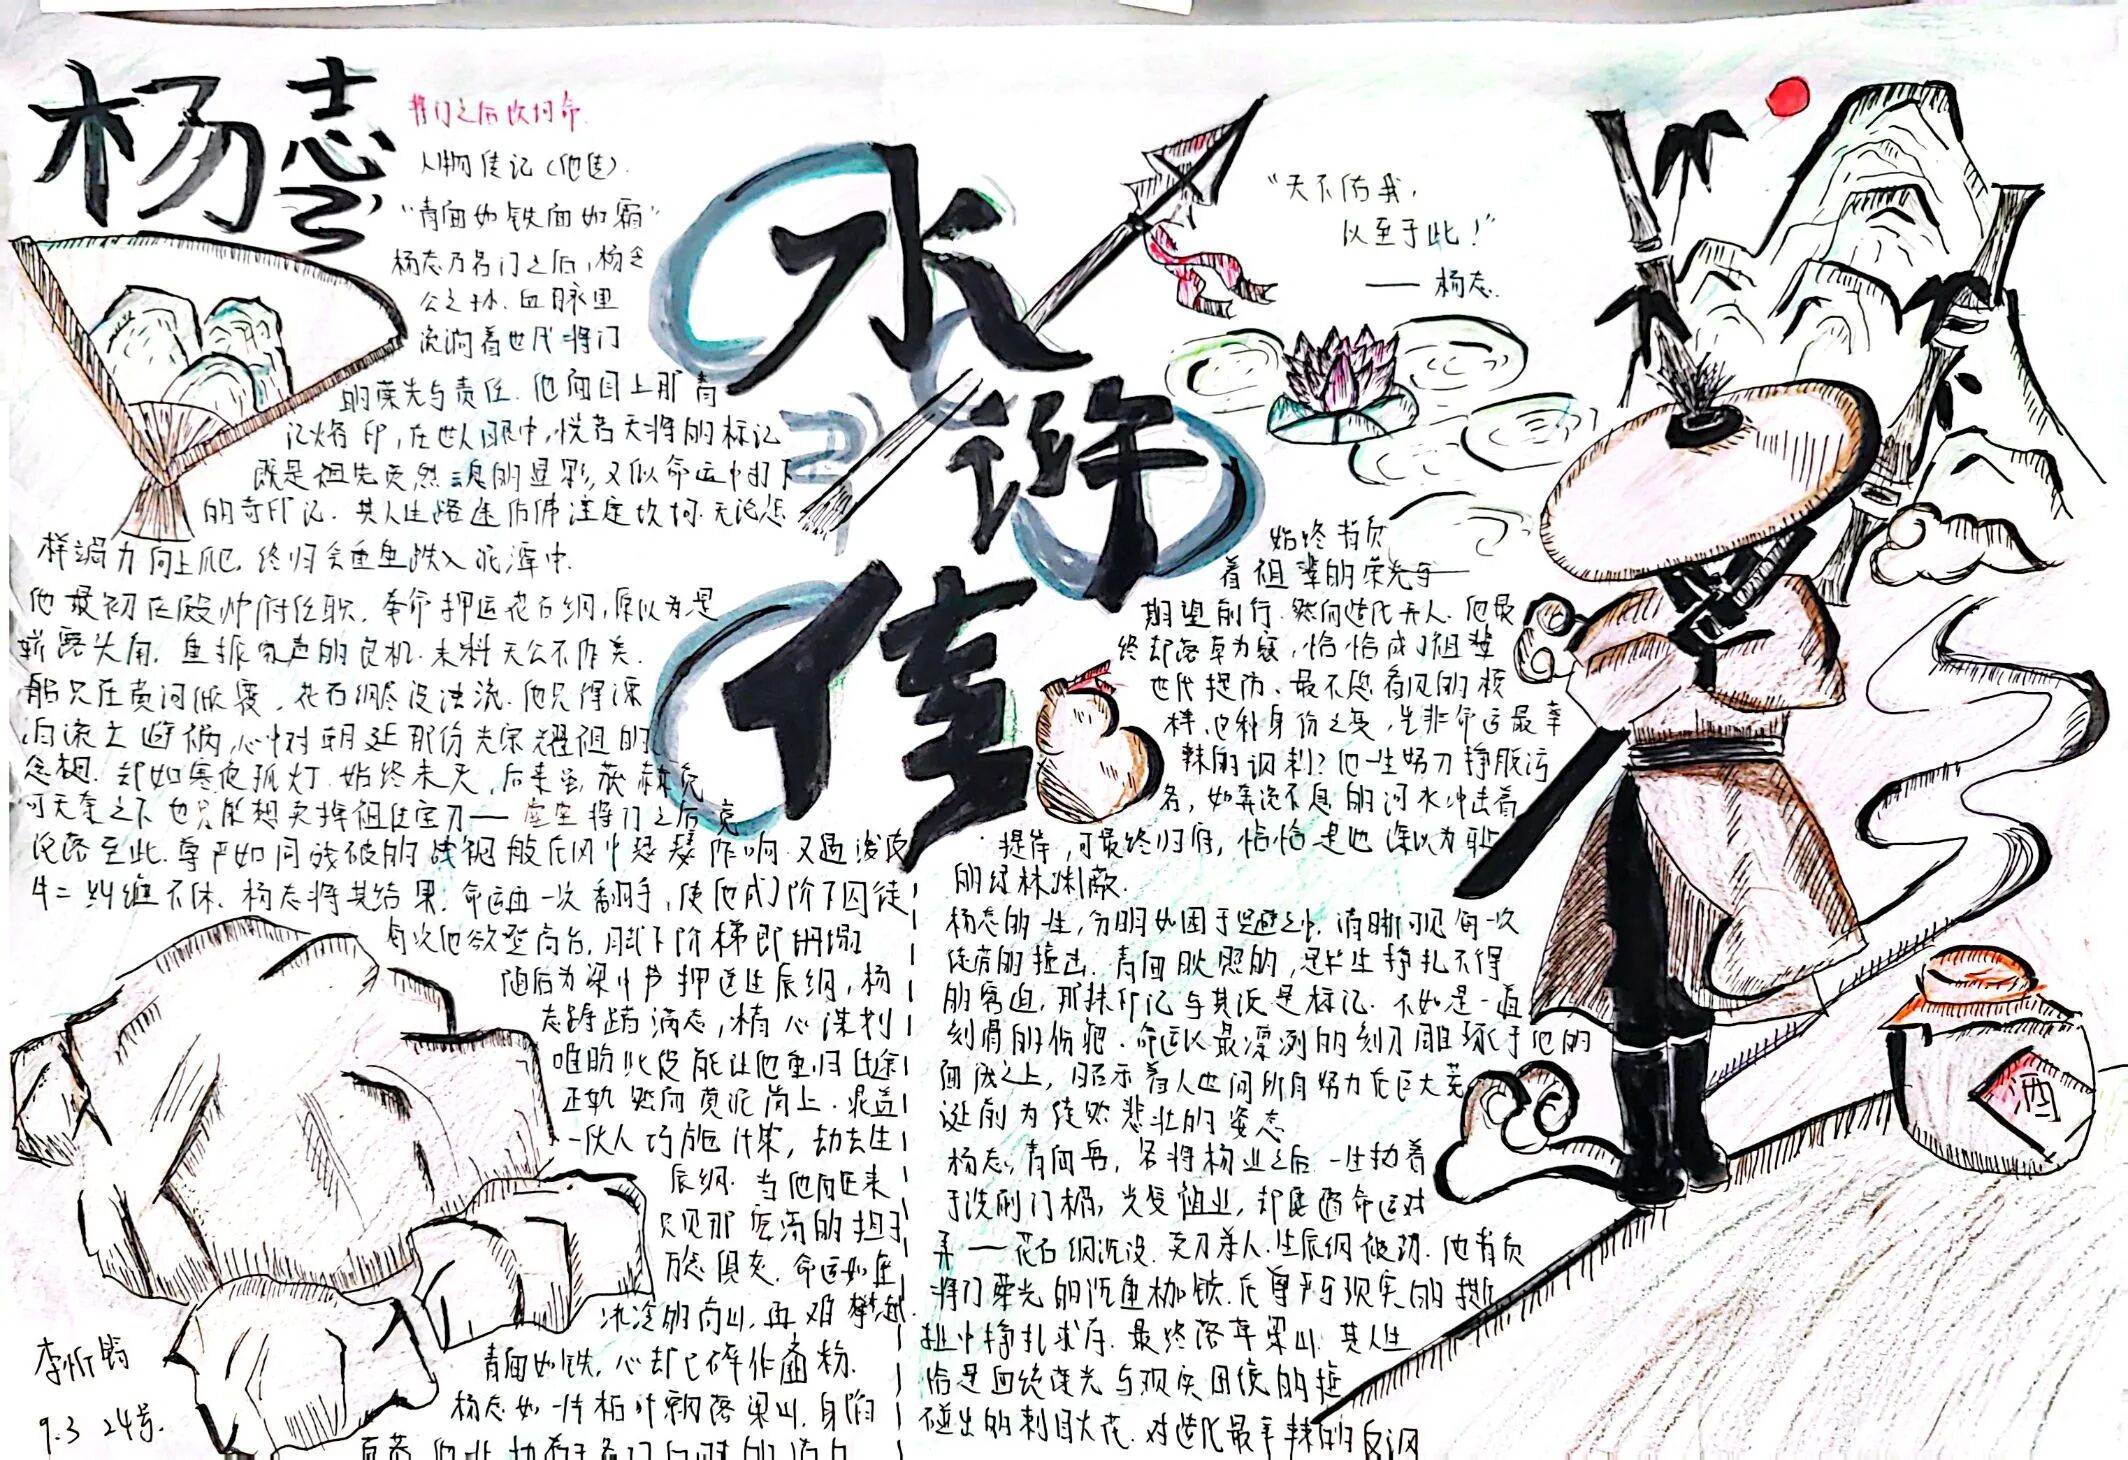 杨志
将门之后坎坷命
人物传记(他传).
“青面如铁面如霜”
杨志乃名门之后,杨令
公之孙.血脉里
流淌着世代将门
的荣光与责任.他面目上那青
记烙印,在世人眼中,恍若天将的标记
既是祖先英烈魂的显彩,又似命运中打下
的奇印记.其人生路途仿佛注定坎坷.无论怎
样竭力向上爬,终归会重重跌入泥潭中.
他最初在殿帅府任职.奉命押运花石纲,原以为是
崭露头角.重振家声的良机.未料天公不作美.
船只在黄河倾覆,花石纲尽没浊流.他只得深
沿流亡避祸,心中对朝廷那份光宗耀祖的
念想.却如寒夜孤灯.始终未灭,后来
可无奈之下也只能想卖掉祖传宝刀——堂堂将门之后竟
没落至此.尊严如同残破的战袍般在风中瑟瑟作响.又遇泼皮
牛二纠缠不休.杨志将其结果.命运再一次翻手,使他成了阶下囚徒
每次他欲登高台,脚下阶梯即坍塌
随后为梁中书押送生辰纲,杨
志踌躇满志,精心谋划
唯盼此役能让他重归仕途
正轨.然而黄泥岗上.晁盖
一伙人巧施计策,劫去生
辰纲.当他醒来
只见那空荡的担子
万念俱灰.命运如座
冰冷的高山,再难攀越.
青面如铁,心却已碎作齑粉.
杨志如一片枯叶飘落梁山.身陷
李忻
9.3 24号.
水浒传
“天不佑我,
以至于此!”
—— 杨志.
始终背负
着祖辈的荣光与
期望前行.然而造化弄人.他最
终却落草为寇,恰恰成了祖辈
世代提防、最不愿看见的模
样.这种身份之变,岂非命运最辛
辣的讽刺?他一生努力挣脱污
名,如奔流不息的河水冲击着
堤岸,可最终归宿,恰恰是他深以为耻
的绿林渊薮.
杨志的一生,分明如困于迷避之中.清晰可见每一次
徒劳的撞击.青面映照的,是半生挣扎不得
的窘迫,那抹印记与其说是标记.不如是一道
刻骨的伤疤.命运以最凛冽的刻刀雕琢于他的
面庞之上,昭示着人世间所有努力在巨大荒
诞前为徒然悲壮的姿态
杨志,青面兽,名将杨业之后.一生执着
于洗刷门楣,光复祖业,却屡遭命运对
弄——花石纲沉没.卖刀杀人.生辰纲被劫.他背负
将门荣光的沉重枷锁.在尊严与现实的撕
扯中挣扎求存.最终落草梁山.其人生
恰是血统荣光与现实困境的撞
碰出的刺目火花.对造化最辛辣的反讽
酒